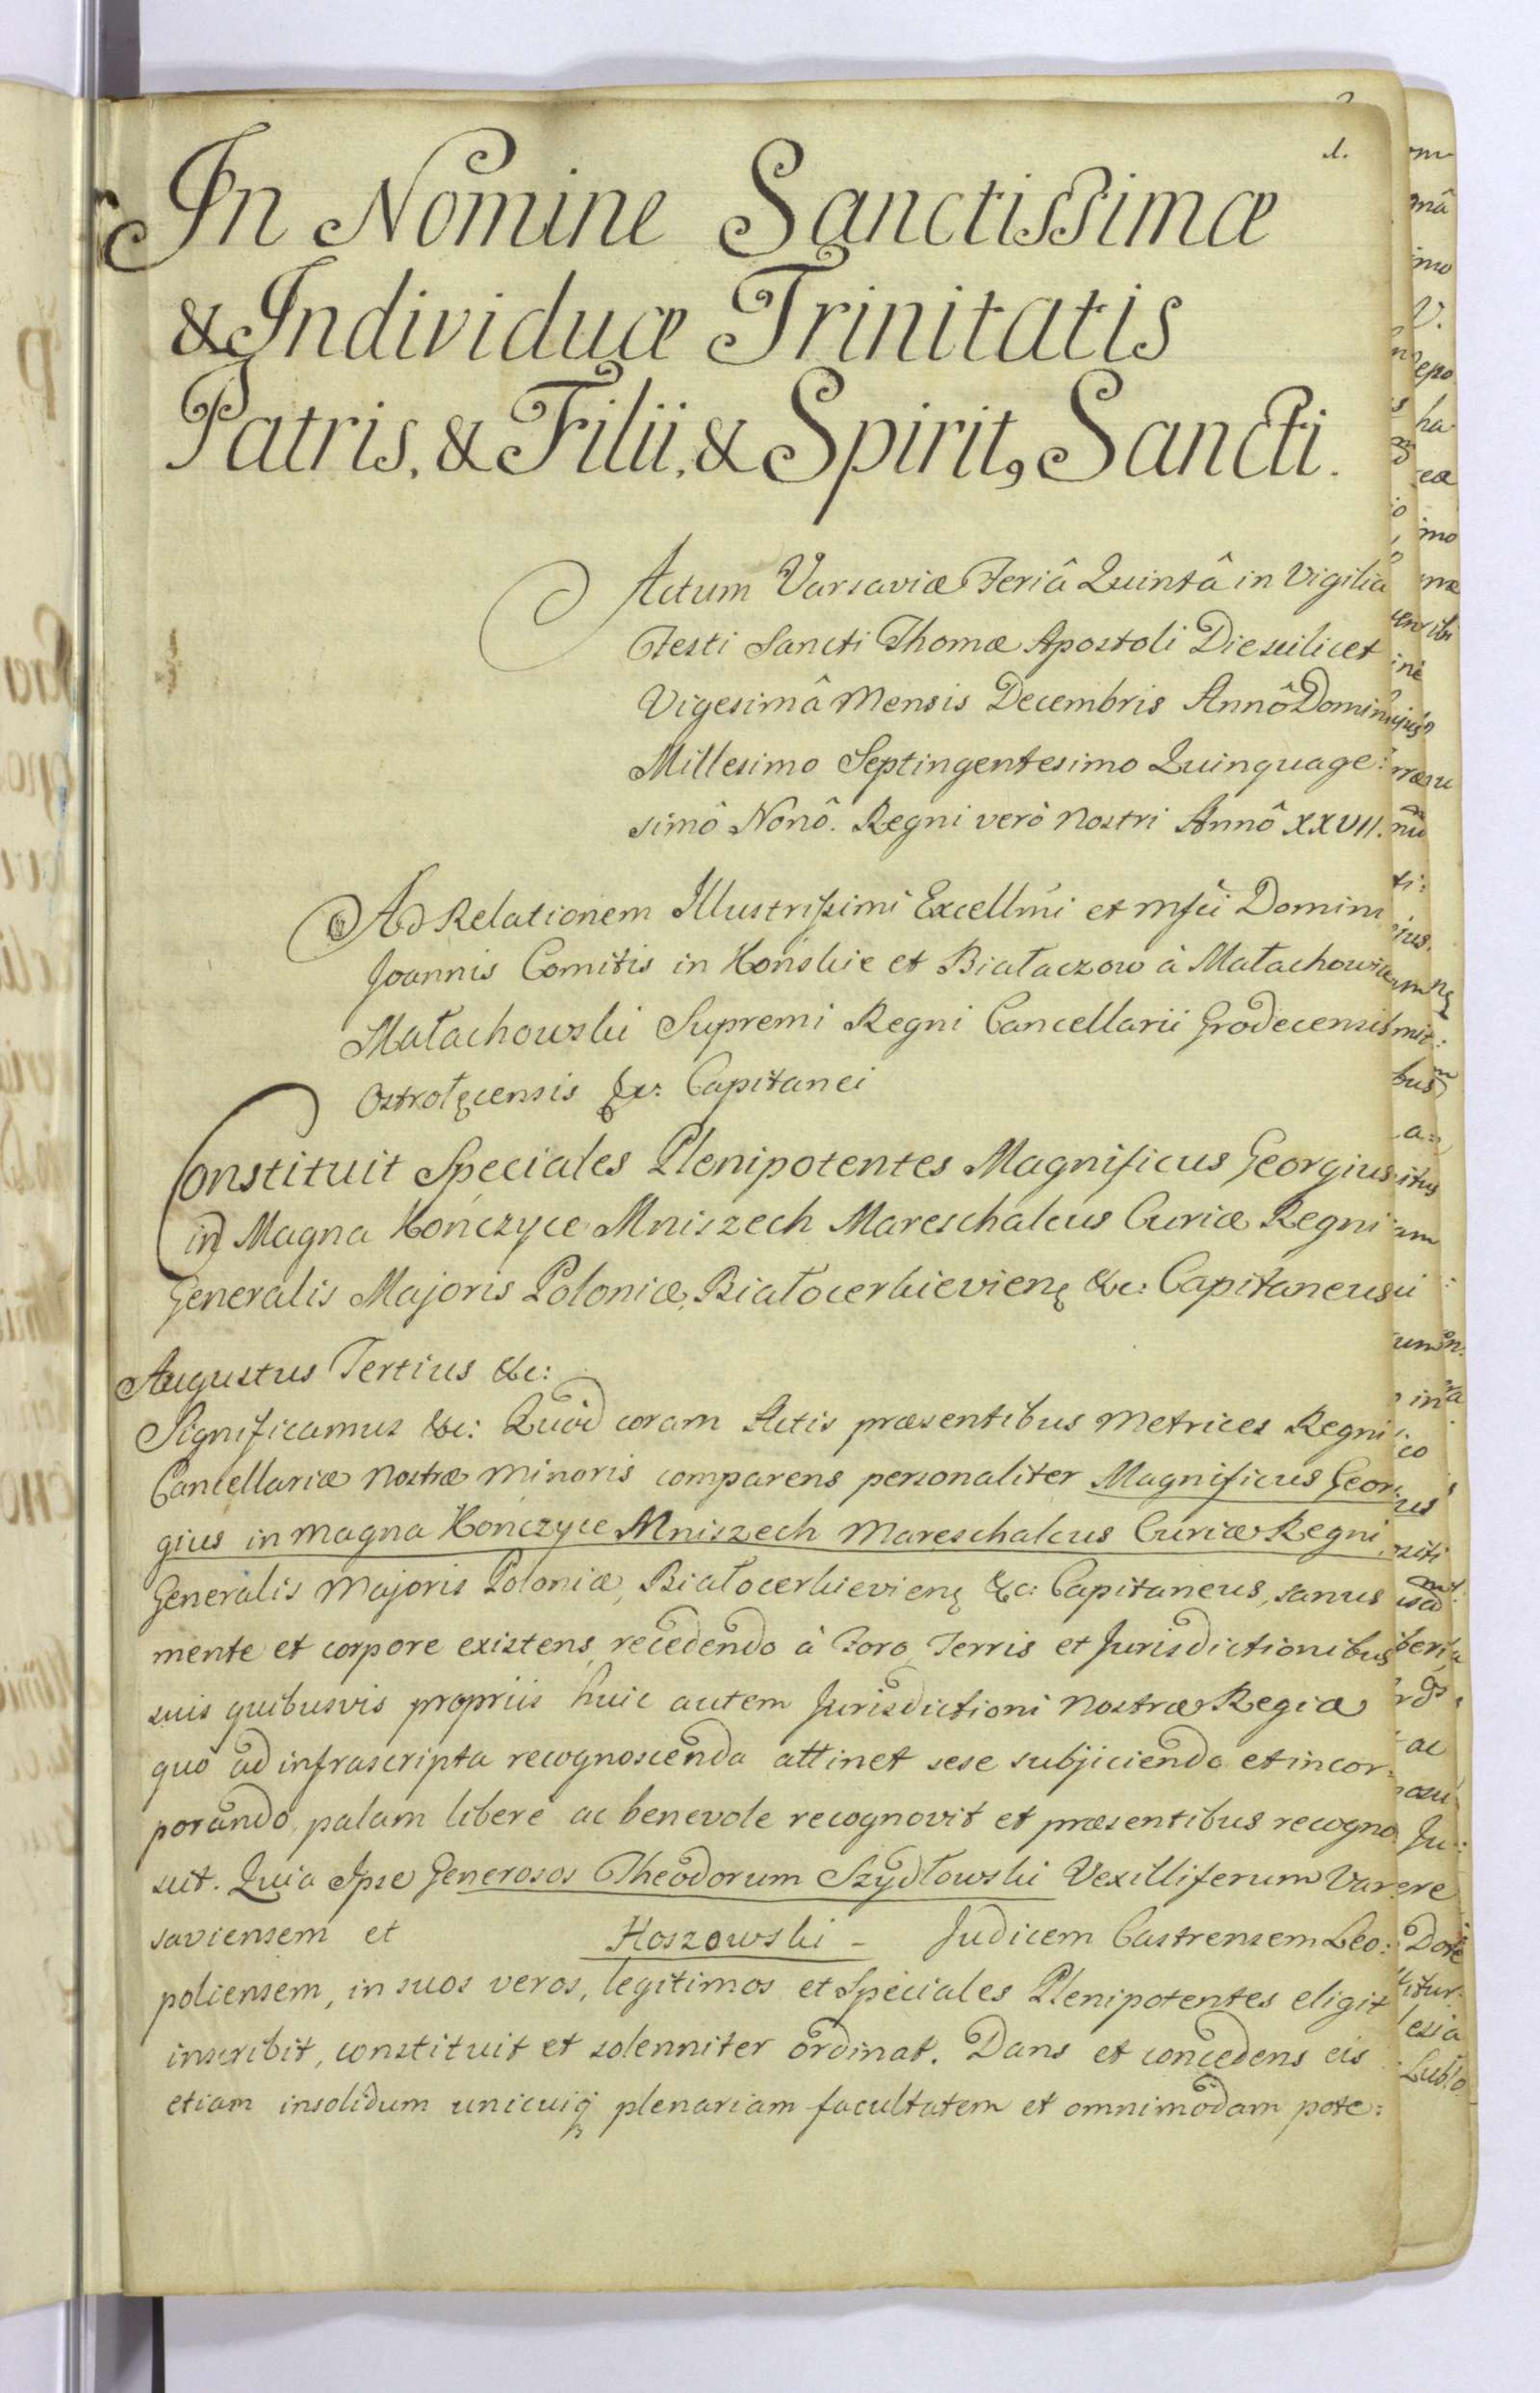 1.
In Nomine Sanctissimæ
& Individuæ Trinitatis
Patris, & Filii, & Spirit9 Sancti.
Actum Varsaviæ Feriâ Quintâ in Vigilia
Festi Sancti Thomæ Apostoli Die scilicet
Vigesimâ Mensis Decembris Annô Domini
Millesimo Septingentesimo Quinquage:
simô Nonô. Regni verò Nostri Annô XXVII.
Ad Relationem Illustrissimi Excellmi et Mfci Domini
Joannis Comitis in Końskie et Białaczow à Małachowice
Małachowski Supremi Regni Cancellarii Grodecensis
Ostrołęcensis &c: Capitanei
Constituit Speciales Plenipotentes Magnificus Georgius
in Magna Kończyce Mniszech Mareschalcus Curiæ Regni
Generalis Majoris Poloniæ, Białocerkievienę &c: Capitaneus
Augustus Tertius &c:
Significamus &c: Quòd coram Actis præsentibus Metrices Regni
Cancellariæ Nostræ Minoris comparens personaliter Magnificus Geor:
gius in Magna Kończyce Mniszech Mareschalcus Curiæ Regni
Generalis Majoris Poloniæ, Białocerkievienę &c: Capitaneus, sanus
mente et corpore existens, recedendo à Foro, Terris et Jurisdictionibus
suis quibusvis propriis huic autem Jurisdictioni Nostræ Regiæ
quo ad infrascripta recognoscenda attinet sese subjiciendo et incor:
porando, palam libere ac benevole recognovit et præsentibus recogno
scit. Quia Ipse Generosos Theodorum Szydłowski Vexilliferum Var
saviensem et Hoszowski - Judicem Castrensem Leo:
poliensem, in suos veros, legitimos et Speciales Plenipotentes eligit
inscribit, constituit et solenniter ordinat. Dans et concedens eis
etiam insolidum unicuiq plenariam facultatem et omnimodam pote: